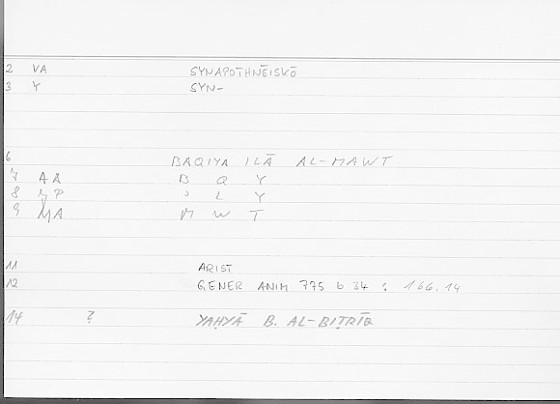 2 VA SYNAPOTHNĒISKŌ
3 Y SYN-
6 BAQIYA ILĀ AL-MAWT
7 AA B Q Y
8 P ʾ L Y
9 MA M W T
11 ARIST
12 GENER ANIM 775 b 34 : 166.14
14 ? YAḤYĀ B. AL-BIṬRĪQ